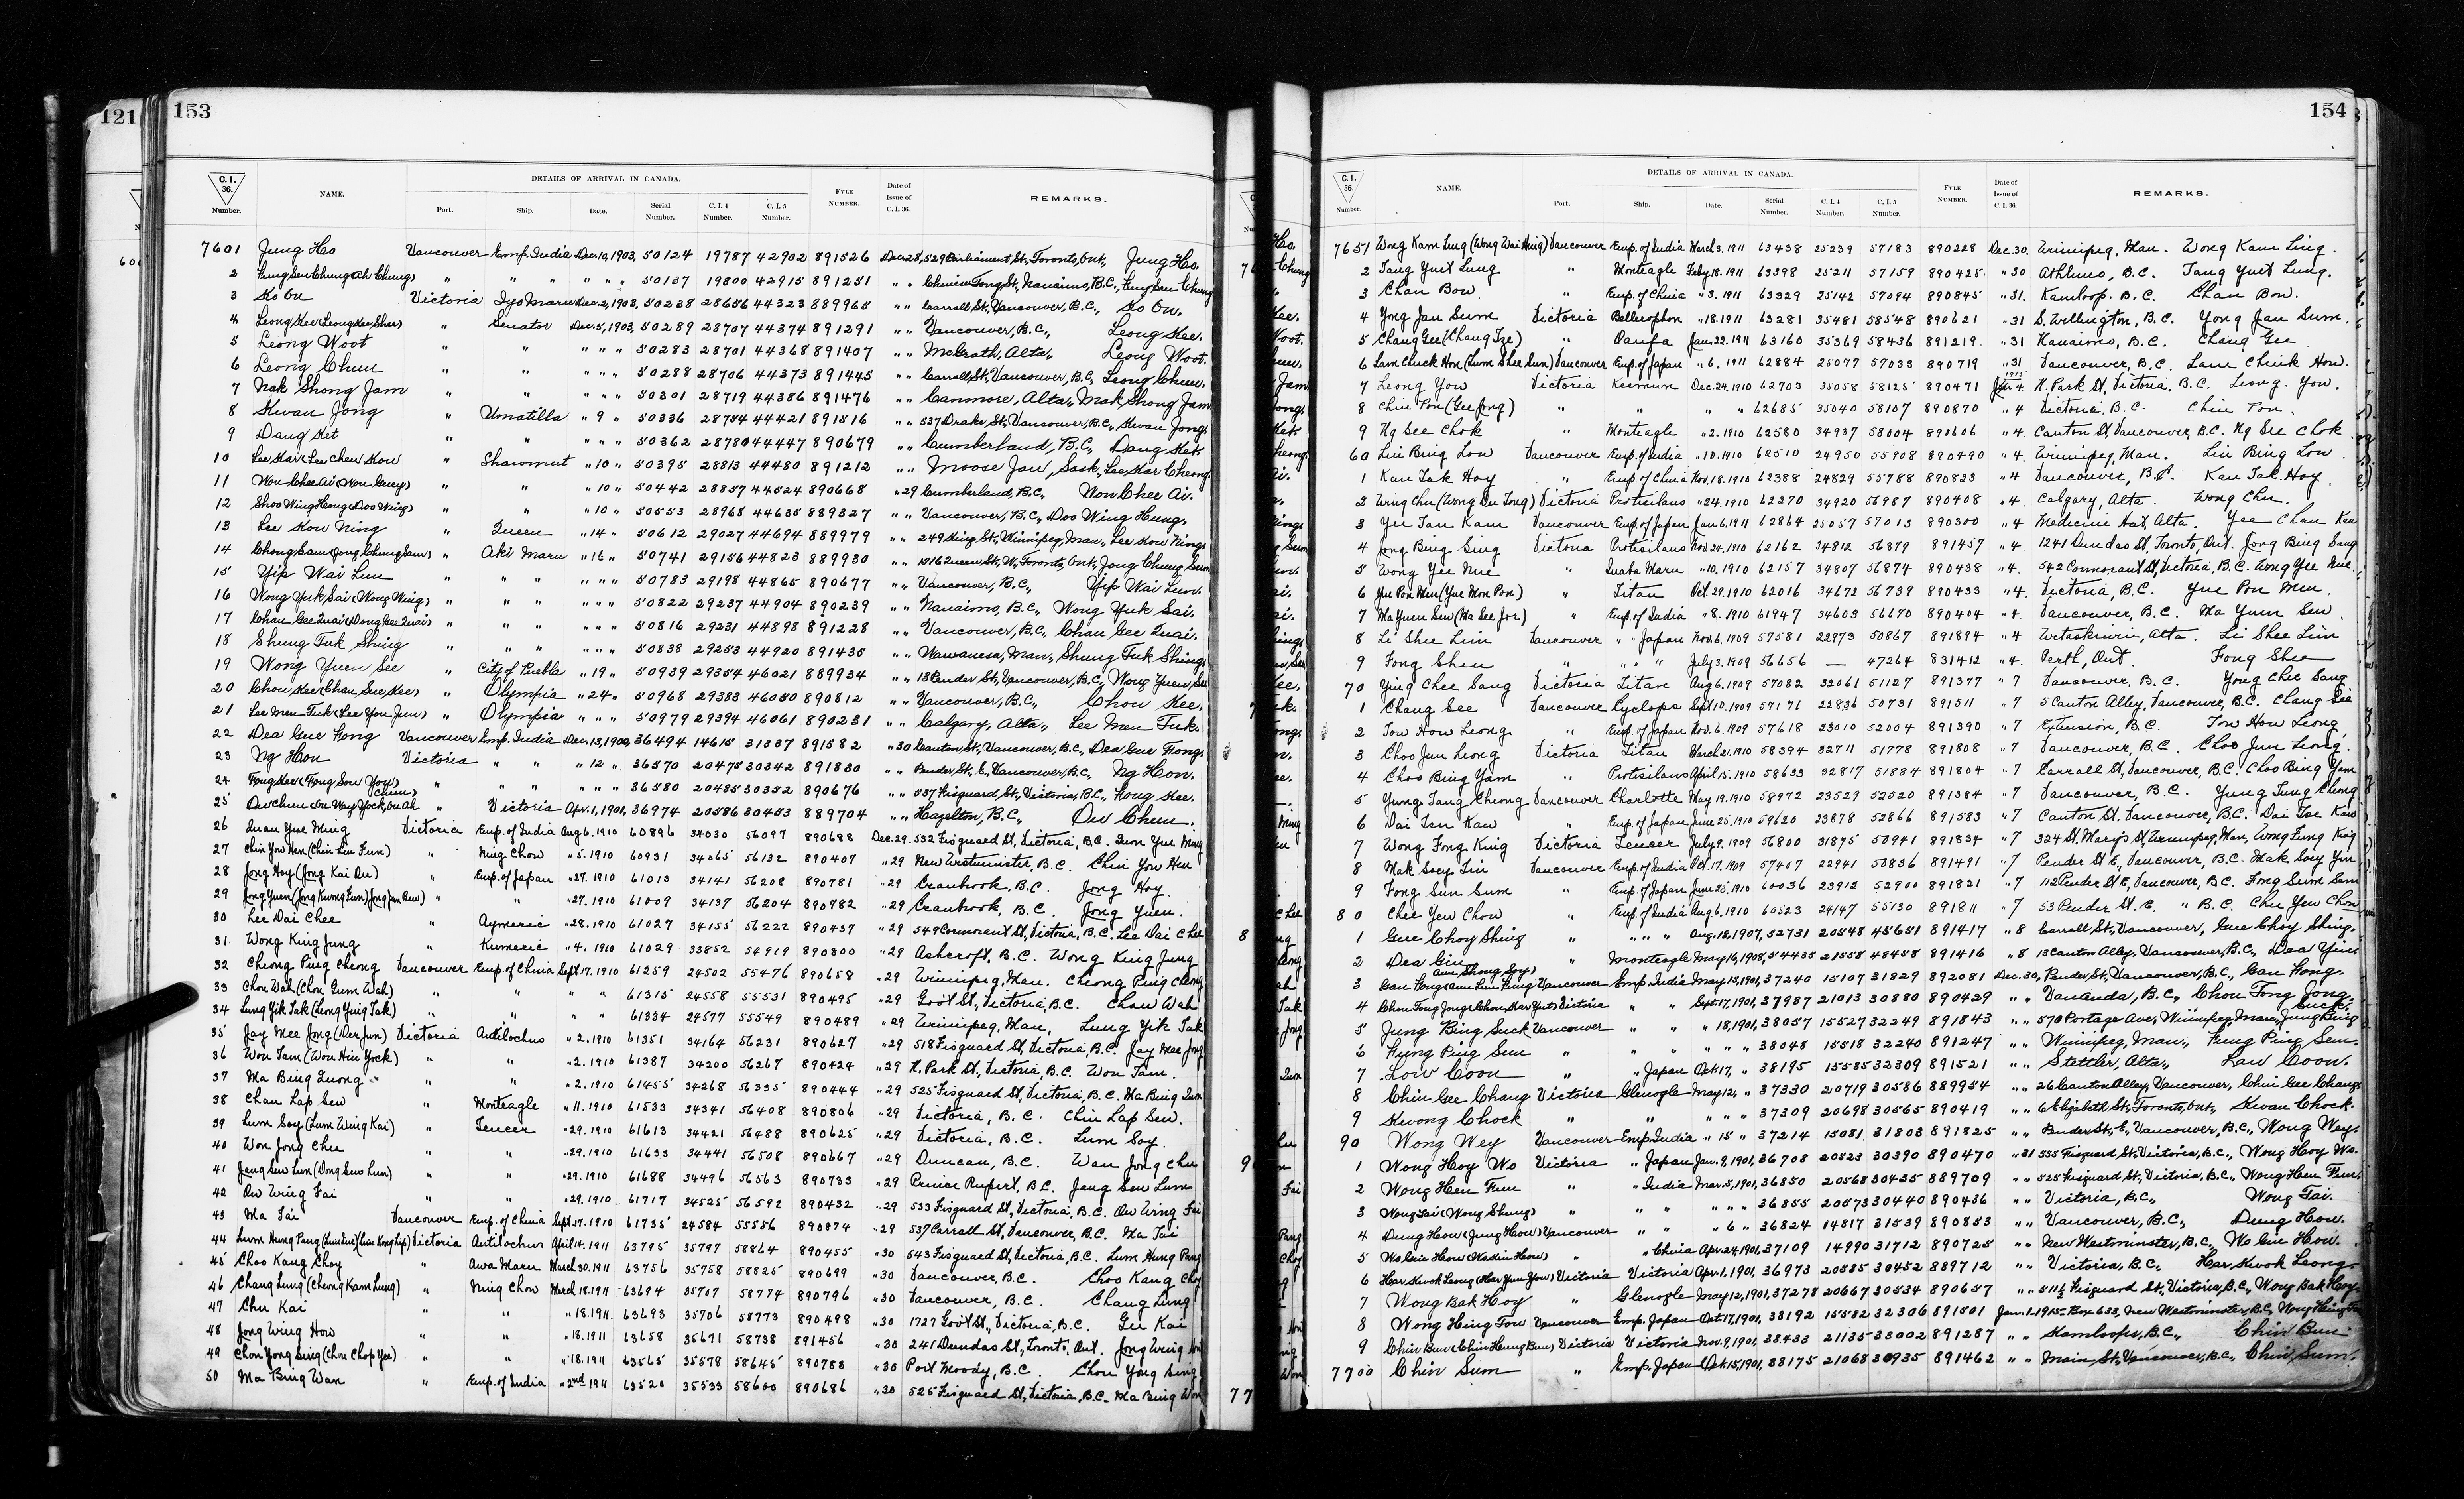 121
153
C.I. 36. Number. NAME. DETAILS OF ARRIVAL IN CANADA. Port. Ship. Date. Serial Number. C.I.4 Number. C.I.5 Number. FYLE NUMBER. Date of Issue of C.I.36. REMARKS.
7601 Jung Ho Vancouver Emp. India Dec. 10, 1903, 50124 19787 42902 891526 Dec. 28, 529 Parliament, St., Toronto, Ont., Jung Ho.
2 Fung Sen Chung (Ah Chung) " " " " " " 50137 19800 42915 891251 " " Chinese Town, St., Nanaimo, B.C., Fung Sen Chung
3 Ko On Victoria Iyo Maru Dec. 2, 1903, 50238 28656 44323 889965 " " Carrall, St., Vancouver, B.C., Ko On.
4 Leong Kee (Leong Kee Shee) " Senator Dec. 5, 1903, 50289 28707 44374 891291 " " Vancouver, B.C., Leong Kee.
5 Leong Woot " " " " " 50283 28701 44368 891407 " " McGrath, Alta., Leong Woot.
6 Leong Chun " " " " " 50288 28706 44373 891445 " " Carrall, St., Vancouver, B.C., Leong Chun.
7 Mak Shong Jam " " " " " 50301 28719 44386 891476 " " Canmore, Alta., Mak Shong Jam
8 Kwan Jong " Umatilla " 9 " 50336 28754 44421 891516 " " 537 Drake St., Vancouver, B.C., Kwan Jong.
9 Dang Ket " " " " " 50362 28780 44447 890679 " " Cumberland, B.C., Dang Ket.
10 Lee Kar (Lee Chen Kow " Shawmut " 10 " 50395 28813 44480 891212 " " Moose Jaw, Sask., Lee Kar Cheong.
11 Mon Chee Ai (Mon Guey) " " " 10 " 50442 28857 44524 890668 " 29 Cumberland, B.C., Mon Chee Ai.
12 Shoo Wing Hong (Doo Wing) " " " 10 " 50553 28968 44635 889327 " " Vancouver, B.C., Doo Wing Hung.
13 Lee Kow Ning " Queen " 14 " 50612 29027 44694 889979 " " 249 King St., Winnipeg, Man., Lee Kow Ning.
14 Chong Sam (Jong Chung Sam) " Aki Maru " 16 " 50741 29156 44823 889930 " " 1516 Queen St., W., Toronto, Ont., Jong Chung Sum
15 Yip Wai Lun " " " " " " 50783 29198 44865 890677 " " Vancouver, B.C., Yip Wai Lun.
16 Wong Yuk Sai (Wong Wing) " " " " " " 50822 29237 44904 890239 " " Nanaimo, B.C., Wong Yuk Sai.
17 Chan Gee Quai (Dong Gee Quai) " " " " " " 50816 29231 44898 891228 " " Vancouver, B.C., Chan Gee Quai.
18 Shung Tuk Shing " " " " " " 50838 29253 44920 891435 " " Wawanesa, Man., Shung Tuk Shing.
19 Wong Yuen See " City of Puebla " 19 " 50939 29354 46021 889934 " " 13 Pender St., Vancouver, B.C., Wong Yuen See
20 Chou Kee (Chan Sue Kee) " Olympia " 24 " 50968 29383 46050 890812 " " Vancouver, B.C., Chou Kee.
21 Lee Men Tuk (Lee You Jun) " Olympia " " " 50979 29394 46061 890231 " " Calgary, Alta., Lee Men Tuk.
22 Dea Gue Hong Vancouver Emp. India Dec. 13, 1900, 36494 14615 31337 891582 " 30 Canton St., Vancouver, B.C., Dea Gue Hong.
23 Ng Hon Victoria " " " 12 " 36570 20475 30342 891830 " " Pender St., E., Vancouver, B.C., Ng Hon.
24 Fong Kee (Fong Sou Yow) " " " " " " 36580 20485 30352 890676 " " 537 Fisguard St., Victoria, B.C., Fong Kee.
25 Ow Chun (Ow Way Yock, Ow Ah Chun) " Victoria Apr. 1, 1901, 36974 20586 30453 889704 " " Hazelton, B.C., Ow Chun.
26 Quan Yue Ming Victoria Emp. of India Aug 6. 1910 60896 34030 56097 890688 Dec. 29. 532 Fisguard St, Victoria, B.C. Quon Yue Ming
27 Chin You Hen (Chin Lin Fun) " Ning Chow " 5. 1910 60931 34065 56132 890407 " 29 New Westminster, B.C. Chin You Hen
28 Jong Hoy (Jong Kai Ou) " Emp. of Japan " 27. 1910 61013 34141 56208 890781 " 29 Cranbrook, B.C. Jong Hoy.
29 Jong Yuen (Jong Kwong Fun) (Jong Jan Bew) " " " 27. 1910 61009 34137 56204 890782 " 29 Cranbrook, B.C. Jong Yuen.
30 Lee Dai Chee " Aymeric " 28. 1910 61027 34155 56222 890437 " 29 549 Cormorant St, Victoria, B.C. Lee Dai Chee
31 Wong King Jung " Kumeric " 4. 1910 61029 33852 54919 890800 " 29 Ashcroft, B.C. Wong King Jung
32 Cheong Ping Cheong Vancouver Emp. of China Sept. 17. 1910 61259 24502 55476 890658 " 29 Winnipeg, Man. Cheong Ping Cheong
33 Chou Wah (Chou Gum Wah) " " " " 61315 24558 55531 890495 " 29 Gov't St, Victoria, B.C. Chau Wah
34 Lung Yik Tak (Leong Ying Tak) " " " " 61334 24577 55549 890489 " 29 Winnipeg, Man. Lung Yik Tak
35 Jay Mee Jong (Der Jun) Victoria Antilochus " 2. 1910 61351 34164 56231 890627 " 29 518 Fisguard St, Victoria, B.C. Jay Mee Jong
36 Wou Tam (Wou Hin Yock) " " " 2. 1910 61387 34200 56267 890424 " 29 N. Park St, Victoria, B.C. Wou Tam.
37 Ma Bing Quong " " " 2. 1910 61455 34268 56335 890444 " 29 525 Fisguard St, Victoria, B.C. Ma Bing Quon
38 Chan Lap Sew " Monteagle " 11. 1910 61533 34341 56408 890806 " 29 Victoria, B.C. Chin Lap Sew.
39 Lum Soy (Lum Wing Kai) " Teucer " 29. 1910 61613 34421 56488 890625 " 29 Victoria, B.C. Lum Soy.
40 Won Jong Chu " " " 29. 1910 61633 34441 56508 890667 " 29 Duncan, B.C. Wan Jong Chu
41 Jang Sew Lun (Dong Sew Lun) " " " 29. 1910 61688 34496 56563 890733 " 29 Prince Rupert, B.C. Jang Sew Lum
42 Ow Wing Fai " " " 29. 1910 61717 34525 56592 890432 " 29 533 Fisguard St, Victoria, B.C. Ow Wing Fai
43 Ma Tai Vancouver Emp. of China Sept 17. 1910 61735 24584 55556 890874 " 29 537 Carrall St, Vancouver, B.C. Ma Tai
44 Lum Hung Pang Victoria Antilochus April 14. 1911 63795 35797 58864 890455 " 30 543 Fisguard St, Victoria, B.C. Lum Hung Pang
45 Choo Kang Choy " Awa Maru March 30. 1911 63756 35758 58825 890699 " 30 Vancouver, B.C. Choo Kang Choy
46 Chang Lung (Cheong Kam Lung) " Ning Chow March 18. 1911 63694 35707 58774 890796 " 30 Vancouver, B.C. Chang Lung
47 Chu Kai " " " 18. 1911. 63693 35706 58773 890498 " 30 1727 Gov't St., Victoria, B.C. Gee Kai
48 Jong Wing How " " " 18. 1911 63658 35671 58738 891456 " 30 241 Dundas St, Toronto, Ont. Jong Wing How
49 Chou Yong Sing (Chou Chop Yee) " " " 18. 1911 63565 35578 58645 890783 " 30 Port Moody, B.C. Chou Yong Sing
50 Ma Bing Wan " Emp. of India " 2nd 1911 63520 35533 58600 890686 " 30 525 Fisguard St, Victoria, B.C. Ma Bing Won
154
C.I. 36. Number. NAME. DETAILS OF ARRIVAL IN CANADA. Port. Ship. Date. Serial Number. C.I.4 Number. C.I.5 Number. FYLE NUMBER. Date of Issue of C.I.36. REMARKS.
7651 Wong Kam Ling (Wong Wai Hing) Vancouver Emp. of India March 3. 1911 63438 25239 57183 890228 Dec. 30. Winnipeg, Man. Wong Kam Ling.
2 Tang Yuet Lung " Monteagle Feb'y 18. 1911 63398 25211 57159 890425 " 30 Athlmo, B.C. Tang Yuet Lung.
3 Chan Bow. " Emp. of China " 3. 1911 63329 25142 57094 890845 " 31. Kamloop. B.C. Chan Bow.
4 Yong Jan Sum Victoria Bellerophon " 18. 1911 63281 35481 58548 890621 " 31 S. Wellington, B.C. Yong Jan Sum.
5 Chang Gee (Chang Tze) " Oanfa Jan. 22. 1911 63160 35369 58436 891219 " 31 Nanaimo, B.C. Chang Gee
6 Lam Chuck Hon (Lum Shee Sun) Vancouver Emp. of Japan " 6. 1911 62884 25077 57033 890719 " 31 Vancouver, B.C. Lam Chuck Hon.
7 Leong You Victoria Keemun Dec. 24. 1910 62703 35058 58125 890471 1915 Jan 4. N. Park St, Victoria, B.C. Leong You.
8 Chin Pon (Gee Jong) " " " " 62685 35040 58107 890870 " 4 Victoria, B.C. Chin Pon.
9 Ng See Chok " Monteagle " 2. 1910 62580 34937 58004 891606 " 4. Canton St, Vancouver, B.C. Ng See Chok
60 Liu Bing Low Vancouver Emp. of India " 10. 1910 62510 24950 55908 890490 " 4. Winnipeg, Man. Liu Bing Low
1 Kan Tak Hoy " Emp. of China Nov. 18. 1910 62388 24829 55788 890823 " 4 Vancouver, B.C. Kan Tak Hoy
2 Wing Chu (Wong Du Tong) Victoria Protesilaus " 24. 1910 62270 34920 56987 890408 " 4. Calgary, Alta. Wong Chu.
3 Yee Tan Kam Vancouver Emp. of Japan Jan 6. 1911 62864 25057 57013 890300 " 4 Medicine Hat, Alta. Yee Chan Kan
4 Jong Bing Sing Victoria Protesilaus Nov. 24. 1910 62162 34812 56879 891457 " 4 1241 Dundas St, Toronto, Ont. Jong Bing Sang
5 Wong Yee Nue " Inaba Maru " 10. 1910 62157 34807 56874 890438 " 4. 542 Cormorant St, Victoria, B.C. Wong Yee Nue.
6 Yue Pon Mun (Yue Mon Pon) " Titan Oct. 29. 1910 62016 34672 56739 890433 " 4. Victoria, B.C. Yue Pon Mun.
7 Ma Yuen Sew (Ma See Joe) " Emp. of India " 8. 1910 61947 34603 56670 890404 " 4. Vancouver, B.C. Ma Yuen Sew
8 Li Shee Lim Vancouver " " Japan Nov. 6. 1909 57581 22973 50867 891894 " 4 Wetaskiwin, Alta. Li Shee Lim
9 Fong Shew " " " " July 3. 1909 56656 — 47264 831412 " 4. Perth, Ont. Fong Shee
70 Ying Chee Sang Victoria Titan Aug 6. 1909 57082 32061 51127 891377 " 7 Vancouver, B.C. Yong Chee Sang
1 Chang See Vancouver Cyclops Sept 10. 1909 57171 22836 50731 891511 " 7 5 Canton Alley, Vancouver, B.C. Chang See
2 Tow How Leong " Emp. of Japan Nov. 6. 1909 57618 23010 52004 891390 " 7 Extension, B.C. Tow How Leong
3 Choo Jun Leong Victoria Titan March 21. 1910 58394 32711 51778 891808 " 7 Vancouver, B.C. Choo Jun Leong.
4 Choo Bing Yam " Protesilaus April 15. 1910 58633 32817 51884 891804 " 7 Carrall St, Vancouver, B.C. Choo Bing Yam
5 Yung Tang Cheong Vancouver Charlotte May 19. 1910 58972 23529 52520 891384 " 7 Vancouver, B.C. Yung Tung Cheong
6 Dai Tsu Kaw " Emp. of Japan June 25. 1910 59620 23878 52866 891583 " 7 Canton St, Vancouver, B.C. Dai Tse Kaw
7 Wong Fong King Victoria Teucer July 9. 1909 56800 31875 50941 891834 " 7 324 St. Mary's St, Winnipeg, Man. Wong Fung King
8 Mak Soey Lin Vancouver Emp. of India Oct. 17. 1909 57407 22941 50836 891491 " 7 Pender St E, Vancouver, B.C. Mak Soey Yin
9 Fong Sun Sum " Emp. of Japan June 25. 1910 60036 23912 52900 891821 " 7 112 Pender St E, Vancouver, B.C. Fong Sum Sam
80 Chee Yew Chow " Emp. of India Aug 6. 1910 60523 24147 55130 891811 " 7 53 Pender St. E. " B.C. Chu Yew Chow
1 Gue Choy Shing " " " " Aug. 18, 1907, 52731 20548 45651 891417 " 8 Carrall St., Vancouver, Gue Choy Shing.
2 Dea Gin " Monteagle May 16, 1908, 54435 21558 48458 891416 " 8 13 Canton Alley, Vancouver, B.C., Dea Yim
3 Gan Hong Vancouver Emp. India May 15, 1901, 37240 15107 31829 892081 Dec. 30, Pender, St., Vancouver, B.C., Gan Hong.
4 Chou Fong Jong (Chou Kar Yut) Victoria " " Sept. 17, 1901, 37987 21013 30880 890429 " " Vananda, B.C., Chou Fong Jong.
5 Jung Bing Suck Vancouver " " " 18, 1901, 38057 15527 32249 891843 " " 570 Portage Ave., Winnipeg, Man., Jung Bing Suck
6 Fung Ping Sun " " " " " " 38048 15518 32240 891247 " " Winnipeg, Man., Fung Ping Sun.
7 Low Coon " " Japan Oct. 17, " 38195 15585 32309 891521 " " Stettler, Alta., Law Coon.
8 Chin Gee Chang Victoria Glenogle May 12, " 37330 20719 30586 889954 " " 26 Canton Alley, Vancouver, Chin Gee Chang.
9 Kwong Chock " " " " " 37309 20698 30565 890419 " " 6 Elizabeth St., Toronto, Ont., Kwan Chock.
90 Wong Wey Vancouver Emp. India " 15 " 37214 15081 31803 891825 " " Pender St., E., Vancouver, B.C., Wong Wey.
1 Wong Hoy Wo Victoria " Japan Jan. 9, 1901, 36708 20523 30390 890470 " 31 555 Fisguard St., Victoria, B.C., Wong Hoy Wo.
2 Wong Hen Fun " " India Mar. 5, 1901, 36850 20568 30435 889709 " " 525 Fisguard St., Victoria, B.C., Wong Hen Fun.
3 Wong Tai (Wong Shung) " " " " " " 36855 20573 30440 890436 " " Victoria, B.C., Wong Tai.
4 Dung How (Jung How) Vancouver " " " 6 " 36824 14817 31539 890853 " " Vancouver, B.C., Dung How.
5 Wo Gin How (Wo Kin How) " " China Apr. 24, 1901, 37109 14990 31712 890725 " " New Westminster, B.C., Wo Gin How.
6 Har Kwok Leong (Har Jun Yow) Victoria Victoria Apr. 1, 1901, 36973 20585 30452 889712 " " Victoria, B.C., Har Kwok Leong.
7 Wong Bak Hoy " Glenogle May 12, 1901, 37278 20667 30534 890657 " " 511½ Fisguard St., Victoria, B.C., Wong Bak Hoy.
8 Wong Hing Tow Vancouver Emp. Japan Oct. 17, 1901, 38192 15582 32306 891501 Jan. 1. 1915 Box 633, New Westminster, B.C., Wong Hing Tow
9 Chin Bun (Chin Heung Bun) Victoria Victoria Nov. 9, 1901, 38433 21135 33002 891287 " " Kamloops, B.C., Chin Bun.
7700 Chin Sum " Emp. Japan Oct. 15, 1901, 38175 21068 30935 891462 " " Main St., Vancouver, B.C., Chin Sum.